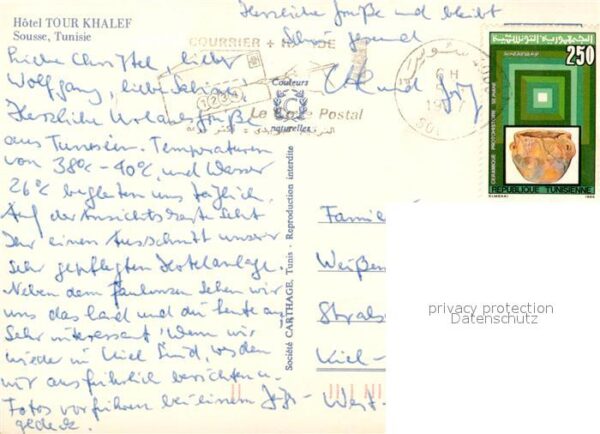 Hôtel TOUR KHALEF
Sousse, Tunisie
Herzliche Grüße und bleibt
schön gesund
COURRIER + RAPIDE
Le Code Postal
Couleurs
naturelles
Liebe Christel, lieber
Wolfgang, liebe
Herzliche Urlaubsgrüße
aus Tunesien. Temperaturen
von 38°C - 40°C und Wasser
26°C begleiten uns täglich.
Auf der Ansichtskarte seht
Ihr einen Ausschnitt unserer
sehr gepflegten Hotelanlage.
Neben dem Faulenzen sehen wir
uns das Land und die Leute an
Sehr interessant! Wenn wir
wieder in Kiel sind, werden
wir ausführlich berichten u.
Fotos vorführen bei einem
gedeck.
Société CARTHAGE, Tunis - Reproduction interdite
الجمهورية التونسية
250
CERAMIQUE PROTOHISTOIRE
REPUBLIQUE TUNISIENNE
Famili
Weißen
Strals
Kiel-
West-
privacy protection
Datenschutz